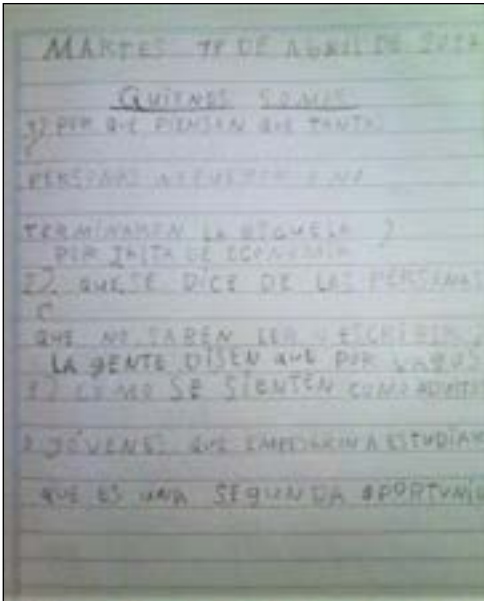 MARTES 18 DE ABRIL DE
QUIENES SOMOS
1) POR QUE PIENSAN QUE TANTAS
PERSONAS NO
TERMINARON LA ESCUELA ?
POR FALTA DE ECONOMIA
2). QUE SE DICE DE LAS PERSONAS
QUE NO SABEN LEER O ESCRIBIR
LA GENTE DISEN QUE POR VAGOS
3) COMO SE SIENTEN COMO ADULTOS
O JÓVENES QUE EMPESARON A ESTUDIAR
QUE ES UNA SEGUNDA OPORTUNID